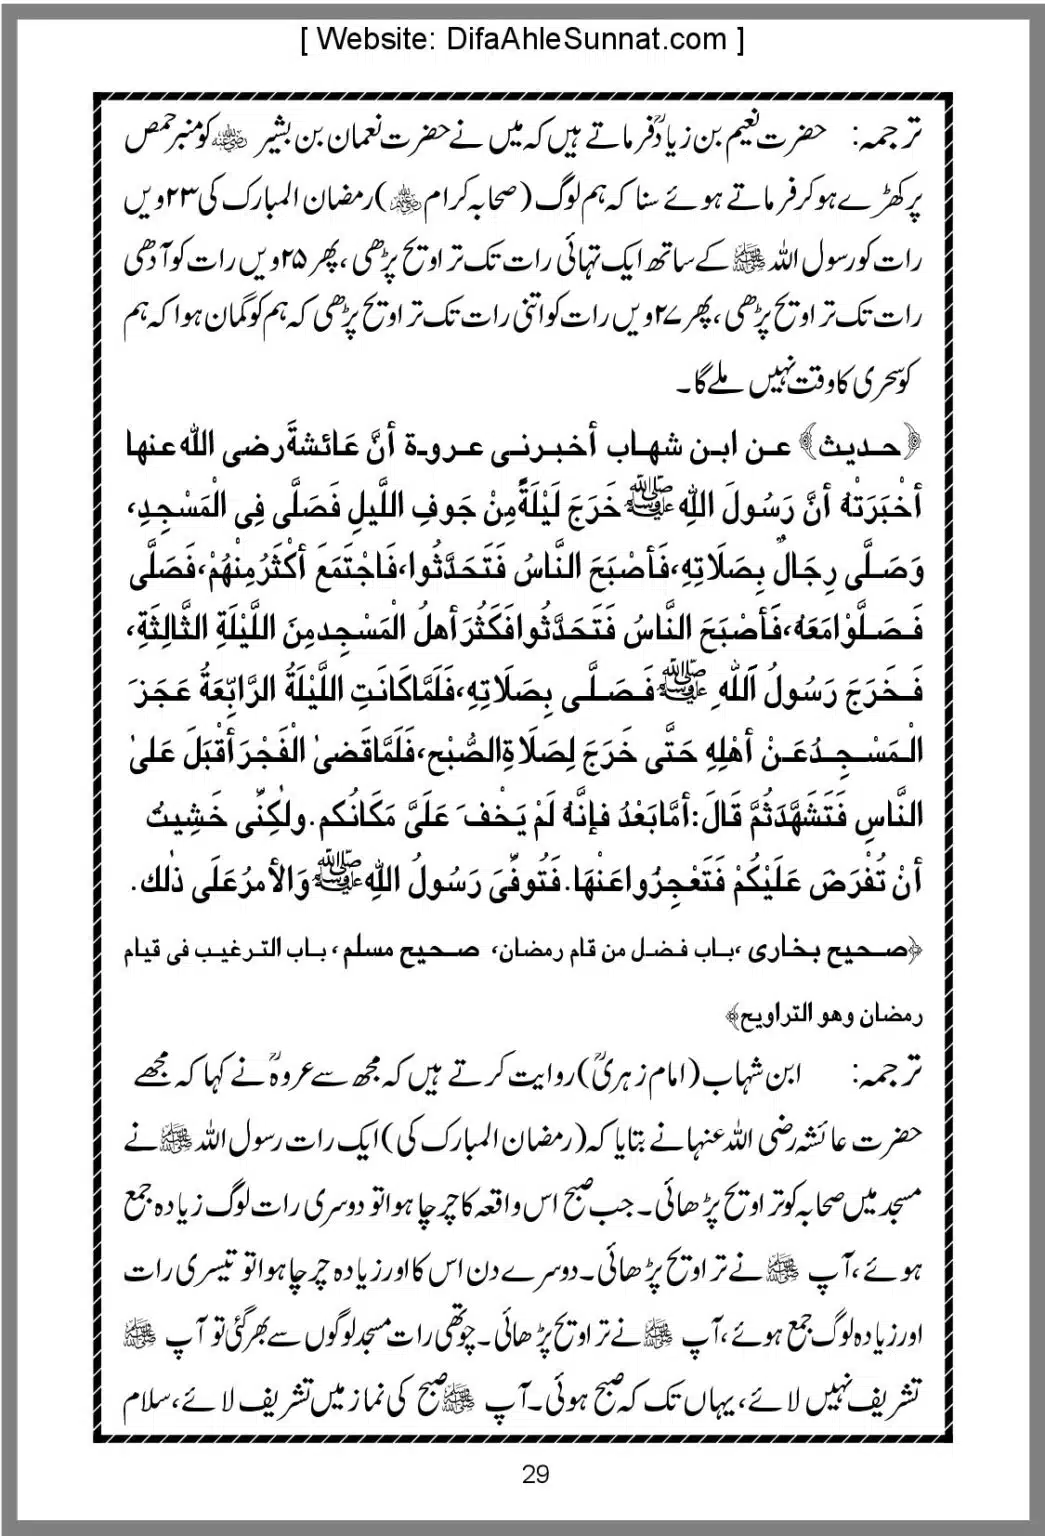 [ Website: DifaAhleSunnat.com ]
ترجمہ: حضرت نعیم بن زیادؒ فرماتے ہیں کہ میں نے حضرت نعمان بن بشیر رضی اللہ عنہ کو منبر حمص
پر کھڑے ہو کر فرماتے ہوئے سنا کہ ہم لوگ (صحابہ کرام ﷺ) رمضان المبارک کی ۲۳ ویں
رات کو رسول اللہ ﷺ کے ساتھ ایک تہائی رات تک تراویح پڑھی، پھر ۲۵ ویں رات کو آدھی
رات تک تراویح پڑھی، پھر ۲۷ ویں رات کو اتنی رات تک تراویح پڑھی کہ ہم کو گمان ہوا کہ ہم
کو سحری کا وقت نہیں ملے گا۔
﴿حدیث﴾ عن ابن شهاب أخبرنی عروة أنَّ عَائشةَ رضی الله عنها
أخْبَرَتْهُ أنَّ رَسُولَ اللّٰهِ ﷺ خَرَجَ لَيْلَةً مِنْ جَوفِ اللَّيلِ فَصَلَّى فِى الْمَسْجِدِ،
وَصَلَّى رِجَالٌ بِصَلَاتِهِ،فَأصْبَحَ النَّاسُ فَتَحَدَّثُوا،فَاجْتَمَعَ أكْثَرُ مِنْهُمْ،فَصَلَّى
فَصَلَّوْا مَعَهُ،فَأصْبَحَ النَّاسُ فَتَحَدَّثُوا فَكَثُرَ أهلُ الْمَسْجِدِ مِنَ اللَّيْلَةِ الثَّالِثَةِ،
فَخَرَجَ رَسُولُ اللّٰهِ ﷺ فَصَلَّى بِصَلَاتِهِ،فَلَمَّا كَانَتِ اللَّيْلَةُ الرَّابِعَةُ عَجَزَ
الْمَسْجِدُ عَنْ أهْلِهِ حَتَّى خَرَجَ لِصَلَاةِ الصُّبْحِ،فَلَمَّا قَضىٰ الْفَجْرَ أقْبَلَ عَلىٰ
النَّاسِ فَتَشَهَّدَ ثُمَّ قَالَ:أمَّا بَعْدُ فإنَّهُ لَمْ يَخْفَ عَلَىَّ مَكَانُكم.ولٰكِنِّى خَشِيتُ
أنْ تُفْرَضَ عَلَيْكُمْ فَتَعْجِزُوا عَنْهَا.فَتُوفِّىَ رَسُولُ اللّٰهِ ﷺ وَالأمرُ عَلَى ذٰلك.
﴿صحیح بخاری، باب فضل من قام رمضان، صحیح مسلم، باب الترغیب فی قیام
رمضان وهو التراویح﴾
ترجمہ: ابن شہاب (امام زہریؒ) روایت کرتے ہیں کہ مجھ سے عروہؒ نے کہا کہ مجھے
حضرت عائشہ رضی اللہ عنہا نے بتایا کہ (رمضان المبارک کی) ایک رات رسول اللہ ﷺ نے
مسجد میں صحابہ کو تراویح پڑھائی۔ جب صبح اس واقعہ کا چرچا ہوا تو دوسری رات لوگ زیادہ جمع
ہوئے، آپ ﷺ نے تراویح پڑھائی۔ دوسرے دن اس کا اور زیادہ چرچا ہوا تو تیسری رات
اور زیادہ لوگ جمع ہوئے، آپ ﷺ نے تراویح پڑھائی۔ چوتھی رات مسجد لوگوں سے بھر گئی تو آپ ﷺ
تشریف نہیں لائے، یہاں تک کہ صبح ہوئی۔ آپ ﷺ صبح کی نماز میں تشریف لائے، سلام
29